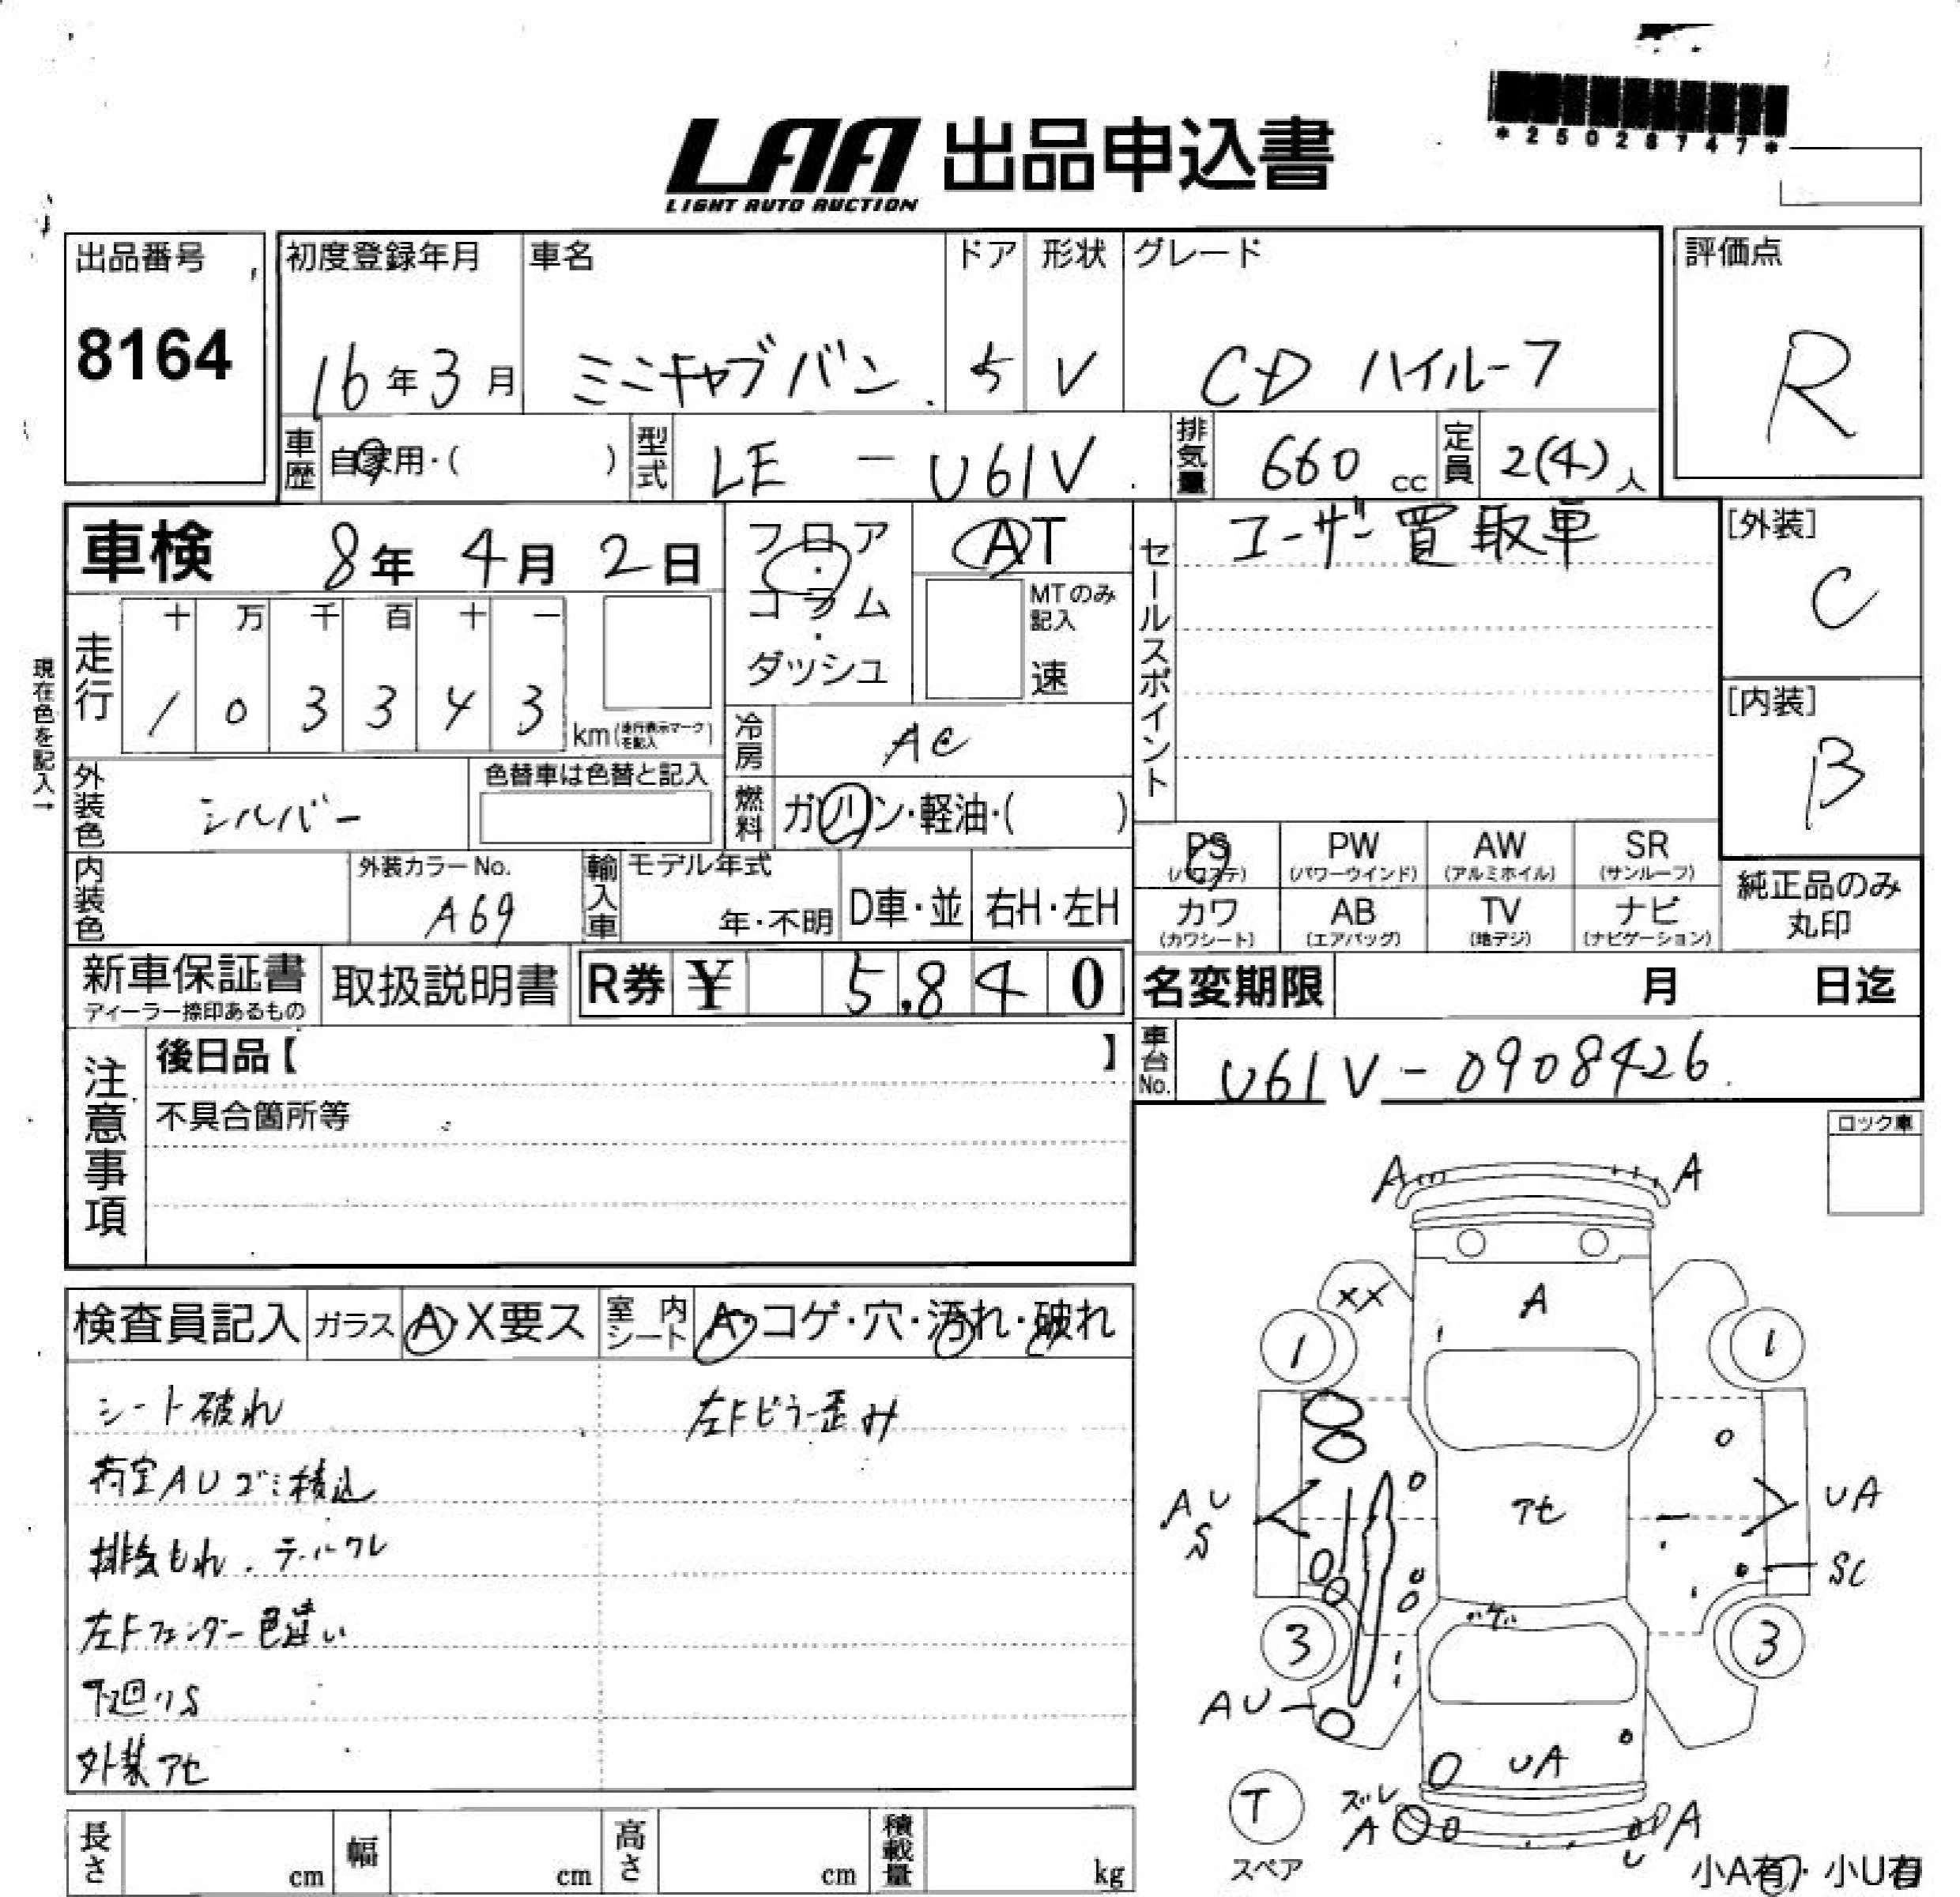 *25028747*
LAA 出品申込書
LIGHT AUTO AUCTION
出品番号 初度登録年月 車名 ドア 形状 グレード 評価点
8164 16年3月 ミニキャブバン 5 V CD ハイルーフ R
車歴 自家用・( ) 型式 LE - U61V 排気量 660 cc 定員 2(4)人
車検 8年 4月 2日 フロア・コラム・ダッシュ AT セールスポイント ユーザー買取車 [外装] C
MTのみ記入 速
現在色を記入→
走行 十 万 千 百 十 一
1 0 3 3 4 3 km (走行表示マークを記入) [内装] B
冷房 AC
外装色 シルバー 色替車は色替と記入 燃料 ガソリン・軽油・( )
PS (パワステ) PW (パワーウインド) AW (アルミホイル) SR (サンルーフ)
内装色 外装カラーNo. A69 輸入車 モデル年式 年・不明 D車・並 右H・左H
カワ (カワシート) AB (エアバッグ) TV (地デジ) ナビ (ナビゲーション) 純正品のみ丸印
新車保証書 ディーラー捺印あるもの 取扱説明書 R券 ¥ 5,840 名変期限 月 日迄
注意事項 後日品【 】 車台No. U61V-0908426
不具合箇所等
ロック車
A A
検査員記入 ガラス A・X要ス 室内シート A・コゲ・穴・汚れ・破れ
XX A
1 1
シート破れ 左Fピラー歪み
荷室AUゴミ積込
AU S アセ UA
排気もれ.
SC
左Fフェンダー色違い
ハゲ
3 3
下廻りS
AU
外装アセ
UA
T ズレ
A A
U
スペア 小A有・小U有
長さ cm 幅 cm 高さ cm 積載量 kg